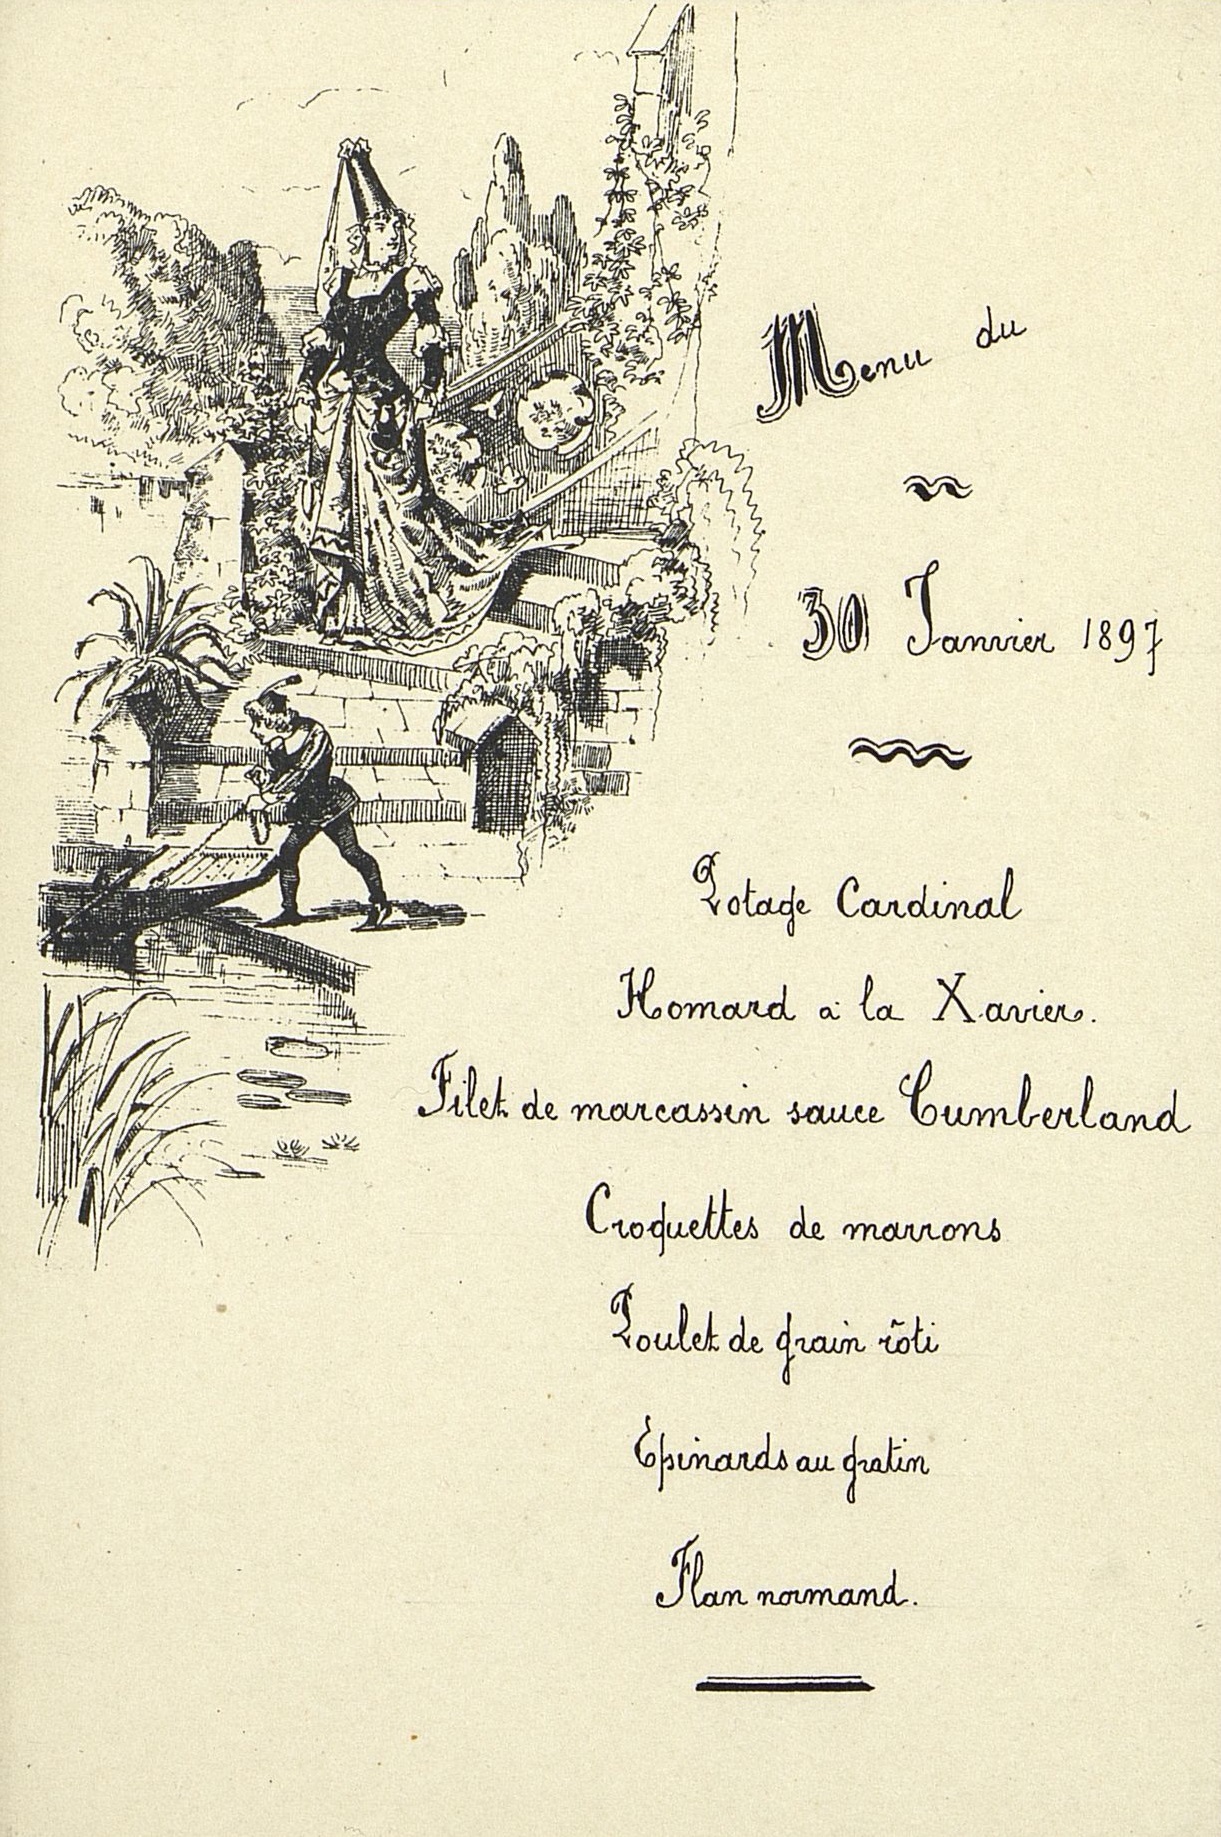 Menu du
30 Janvier 1897
Potage Cardinal
Homard à la Xavier.
Filet de marcassin sauce Cumberland
Croquettes de marrons
Poulet de grain rôti
Epinards au gratin
Flan normand.